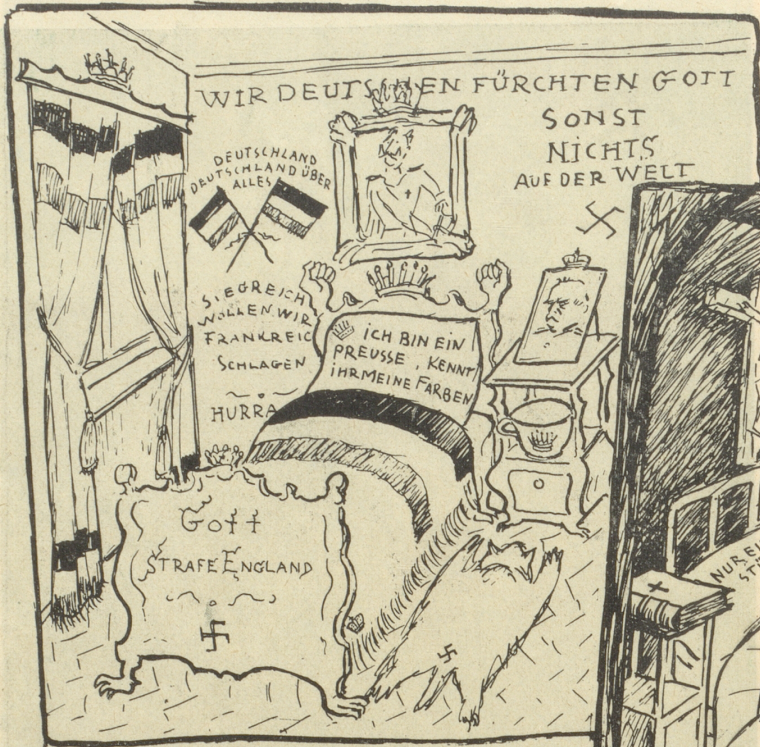 WIR DEUTSCHEN FÜRCHTEN GOTT
SONST
NICHTS
AUF DER WELT
DEUTSCHLAND
DEUTSCHLAND ÜBER
ALLES
SIEGREICH
WOLLEN WIR
FRANKREIC
SCHLAGEN
HURRA
ICH BIN EIN
PREUSSE, KENNT
IHR MEINE FARBEN
Gott
STRAFE ENGLAND
NUR